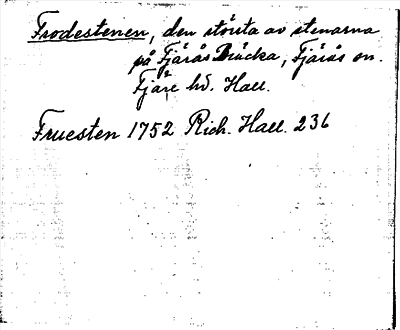 Frodestenen, den största av stenarna
på Fjärås Bräcka, Fjärås sn.
Fjäre hd. Hall.
Fruesten 1752 Rich. Hall. 236